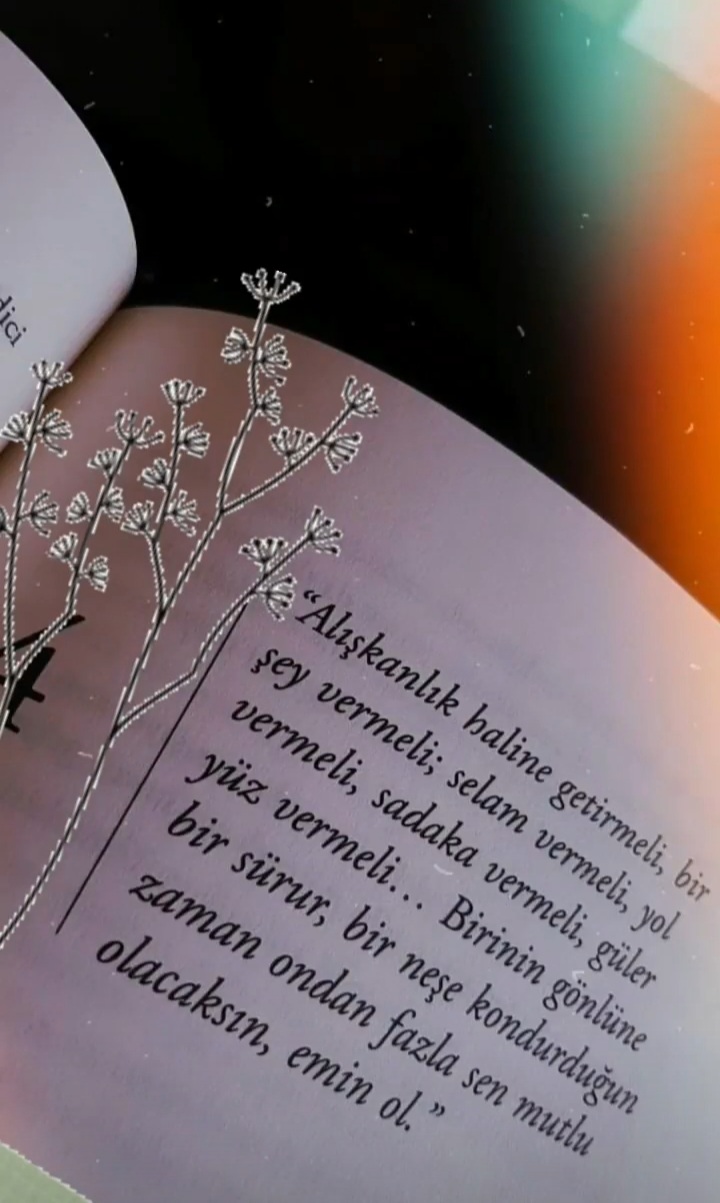 dici
4
“Alışkanlık haline getirmeli, bir
şey vermeli; selam vermeli, yol
vermeli, sadaka vermeli, güler
yüz vermeli... Birinin gönlüne
bir sürur, bir neşe kondurduğun
zaman ondan fazla sen mutlu
olacaksın, emin ol.”